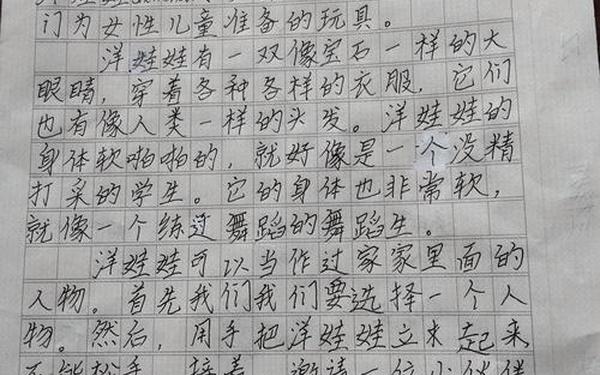 洋娃娃
门为女性儿童准备的玩具。
洋娃娃有一双像宝石一样的大
眼睛，穿着各种各样的衣服，它们
也有像人类一样的头发。洋娃娃的
身体软啪啪的，就好像是一个没精
打采的学生。它的身体也非常软，
就像一个练过舞蹈的舞蹈生。
洋娃娃可以当作过家家里面的
人物。首先我们我们要选择一个人
物。然后，用手把洋娃娃立来起来
不能松手，接着，邀请一位小伙伴